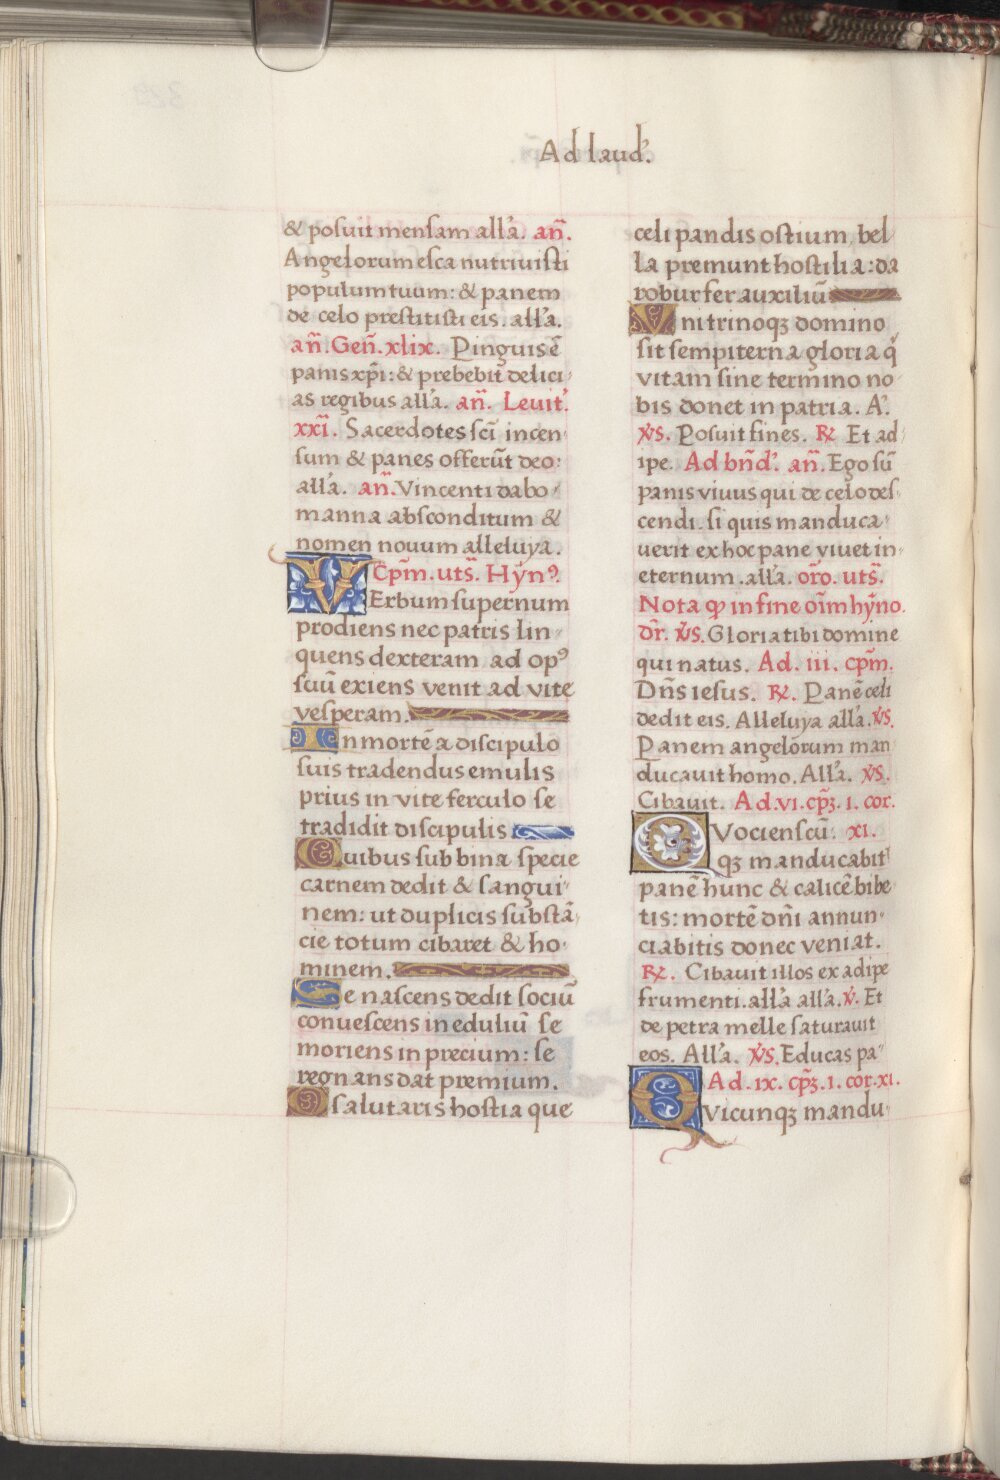 Ad laud'.
& posuit mensam all'a. an̄.
Angelorum esca nutriuisti
populum tuum: & panem
de celo prestitisti eis. all'a.
an̄. Gen̄. xlix. Pinguis ē
panis xp̄i: & prebebit̄ delici
as regibus all'a. an̄. Leuit'.
xxi. Sacerdotes sc̄i incen
sum & panes offerūt deo:
all'a. an̄. Vincenti dabo
manna absconditum &
nomen nouum alleluya.
Cp̄m. uts̄. Hȳnꝰ.
VErbum supernum
prodiens nec patris lin
quens dexteram ad opꝰ
suū exiens venit ad vite
vesperam.
In mortē a discipulo
suis tradendus emulis
prius in vite ferculo se
tradidit discipulis
Quibus sub bina specie
carnem dedit & sangui
nem: ut duplicis substā
cie totum cibaret & ho
minem.
Se nascens dedit sociū
conuescens in eduliū se
moriens in precium: se
regnans dat premium.
O salutaris hostia que
celi pandis ostium, bel
la premunt hostilia: da
robur fer auxiliū
Vni trinoqꝫ domino
sit sempiterna gloria q̄
vitam sine termino no
bis donet in patria. A'.
v̄s. Posuit fines. ℟ Et ad
ipe. Ad bn̄d'. an̄. Ego sū
panis viuus qui de celo des
cendi. si quis manduca
uerit ex hoc pane viuet in
eternum. all'a. or̄o. uts̄.
Nota ꝙ in fine oīm hȳno.
dr̄. v̄s. Gloria tibi domine
qui natus. Ad. iii. cp̄m.
Dn̄s iesus. ℟. Panē celi
dedit eis. Alleluya all'a. v̄s.
Panem angelorum man
ducauit homo. All'a. v̄s.
Cibauit. Ad. vi. cp̄ꝫ. i. cor.
QVociensc̄ū. xi.
qꝫ manducabit
panē hunc & calicē bibe
tis: mortē dn̄i annun
ciabitis donec veniat.
℟. Cibauit illos ex adipe
frumenti. all'a all'a. v̄. Et
de petra melle saturauit
eos. All'a. v̄s. Educas pa
Ad. ix. cp̄ꝫ. i. cor. xi.
QVicunqꝫ mandu